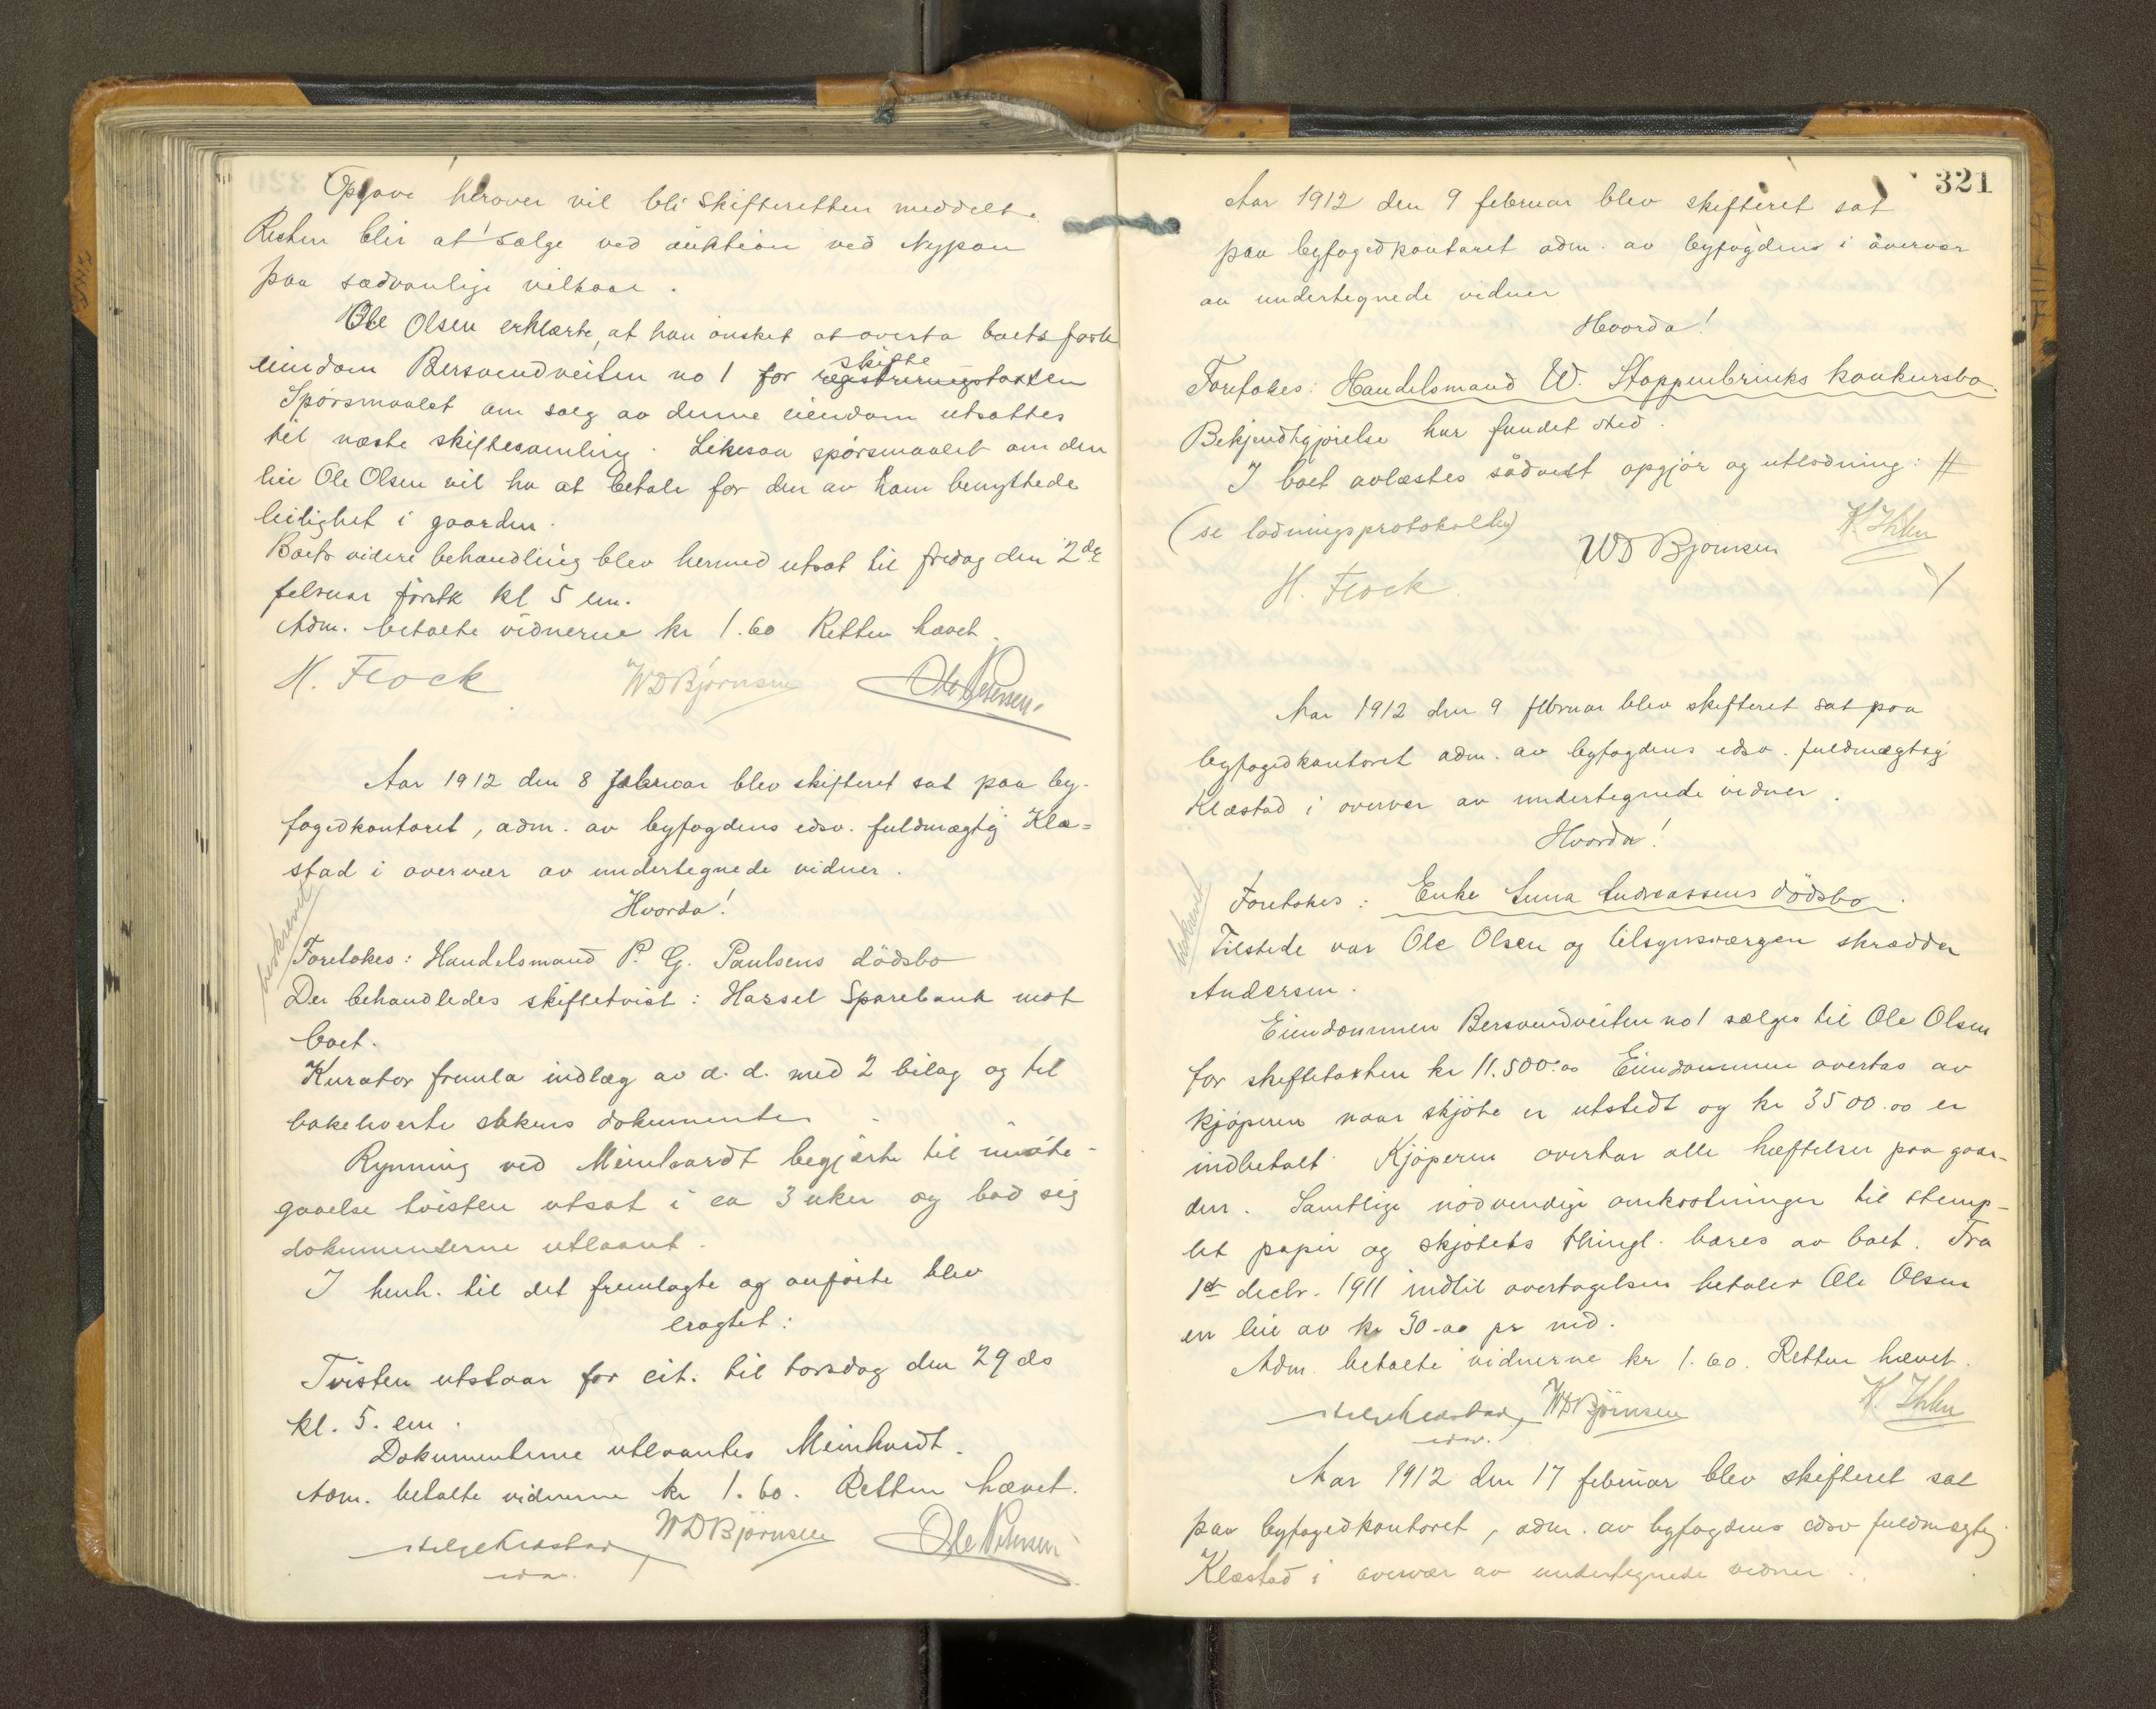 Opgave herover vil bli skifteretten meddelt.
Resten blir at sælge ved auktion ved Nypan
paa sædvanlige vilkaar.
Ole Olsen erklærte, at han ønsket at overta boets faste
eiendom Bersvendveiten no 1 for registreringstaxten
skifte
Spörsmaalet om salg av denne eiendom utsattes
til næste skiftesamling. Likesaa spörsmaalet om den
leie Ole Olsen vil ha at betale for den av ham benyttede
leilighet i gaarden.
Boets videre behandling blev hermed utsat til fredag den 2de
februar förstk kl 5 em.
Adm. betalte vidnerne kr 1.60 Retten hævet.
H. Flock WD Björnsen Ole Petersen
Aar 1912 den 8 februar blev skifteret sat paa by-
fogedkontoret, adm. av byfogdens edsv. fuldmægtig Klæ=
stad i overvær av undertegnede vidner.
Hvorda!
beskrevet
Foretokes: Handelsmand P. G. Paulsens dödsbo
Der behandledes skiftetvist: Hassel Sparebank mot
boet.
Kurator fremla indlæg av d.d. med 2 bilag og til
bakeleverte sakens dokumenter.
Rynning ved Meinhardt begjærte til imöte-
gaaelse tvisten utsat i ca 3 uker og bad sig
dokumenterne utlaant.
I henh. til det fremlagte og anförte blev
eragtet:
Tvisten utstaar for cit. til torsdag den 29 ds
kl. 5. em.
Dokumenterne utlaantes Meinhardt.
Adm. betalte vidnerne kr 1.60. Retten hævet.
Helge Klæstad WD Björnsen Ole Petersen
edsv.
321
Aar 1912 den 9 februar blev skifteret sat
paa byfogedkontoret adm. av byfogden i overvær
av undertegnede vidner
Hvorda!
Foretokes: Handelsmand W. Stoppenbrinks konkursbo.
Bekjendtgjörelse har fundet sted.
I boet avlæstes sådant opgjör og utlodning: #
(se lodningsprotokollen)
K. Ihlen
WD Bjornsen
H. Flock.
Aar 1912 den 9 februar blev skifteret sat paa
byfogedkontoret adm. av byfogdens edsv. fuldmægtig
Klæstad i overvær av undertegnede vidner.
Hvorda!
beskrevet
Foretokes: Enke Anna Andreassens dödsbo.
Tilstede var Ole Olsen og tilsynsværgen skrædder
Andersen.
Eiendommen Bersvendveiten no 1 sælges til Ole Olsen
for skiftetaxten kr 11.500.00 Eiendommen overtas av
kjöperen naar skjöte er utstedt og kr 3500.00 er
indbetalt. Kjöperen overtar alle hæftelser paa gaar-
den. Samtlige nödvendige omkostninger til stemp-
let papir og skjötets thingl. bæres av boet. Fra
1st decbr. 1911 indtil overtagelsen betaler Ole Olsen
en leie av kr 30.00 pr md.
Adm. betalte vidnerne kr 1.60. Retten hævet.
Helge Klæstad WD Björnsen K. Ihlen
edsv.
Aar 1912 den 17 februar blev skifteret sat
paa byfogedkontoret, adm. av byfogdens edsv fuldmægtig
Klæstad i overvær av undertegnede vidner.